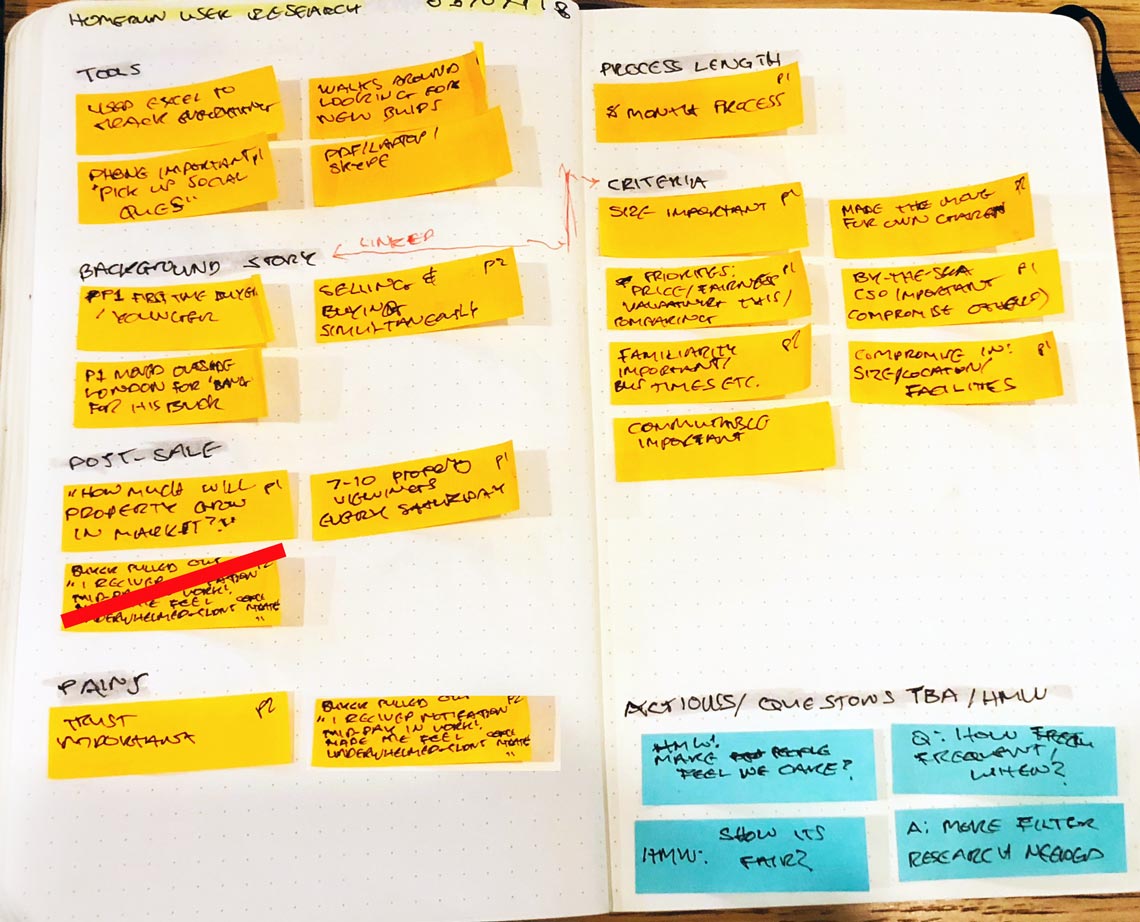 HOMERUN USER RESEARCH
TOOLS
USED EXCEL TO
TRACK
WALKS AROUND
LOOKING FOR
NEW BUILDS
PHONE IMPORTANT P1
"PICK UP SOCIAL
QUES"
PDF/LAPTOP/
SKYPE
BACKGROUND STORY
LINKED
P1 FIRST TIME BUYER
/ YOUNGER
SELLING & P2
BUYING
SIMULTANEOUSLY
P1 MOVED OUTSIDE
LONDON FOR 'BANG
FOR HIS BUCK
POST-SALE
"HOW MUCH WILL P1
PROPERTY GROW
IN MARKET?"
7-10 PROPERTY P1
VIEWINGS
EVERY SATURDAY
PULLED OUT
"I
MID-DAY WORK!
ME FEEL
PAINS
TRUST P2
IMPORTANT
PULLED OUT P2
"I RECIVED NOTIFICATION
MID-DAY IN WORK!
MADE ME FEEL
UNDERWHELMED-
PROCESS LENGTH
P1
8 MONTH PROCESS
CRITERIA
SIZE IMPORTANT P2
MADE THE MOVE P2
FOR OWN
PRIORITIES: P1
PRICE/FAIRNESS
THIS/
COMPARING
BY-THE-SEA P1
(SO IMPORTANT
COMPROMISE OTHERS)
FAMILIARITY P2
IMPORTANT/
BUS TIMES ETC.
COMPROMISE IN: P1
SIZE/LOCATION/
FACILITES
COMMUTABLE
IMPORTANT
ACTIOUS/ QUESTONS TBA/HMW
HMW:
MAKE PEOPLE
FEEL WE CARE?
Q: HOW
FREQUENT/
WHEN?
SHOW ITS
HMW: FAIR?
A: MORE FILTER
RESEARCH NEEDED